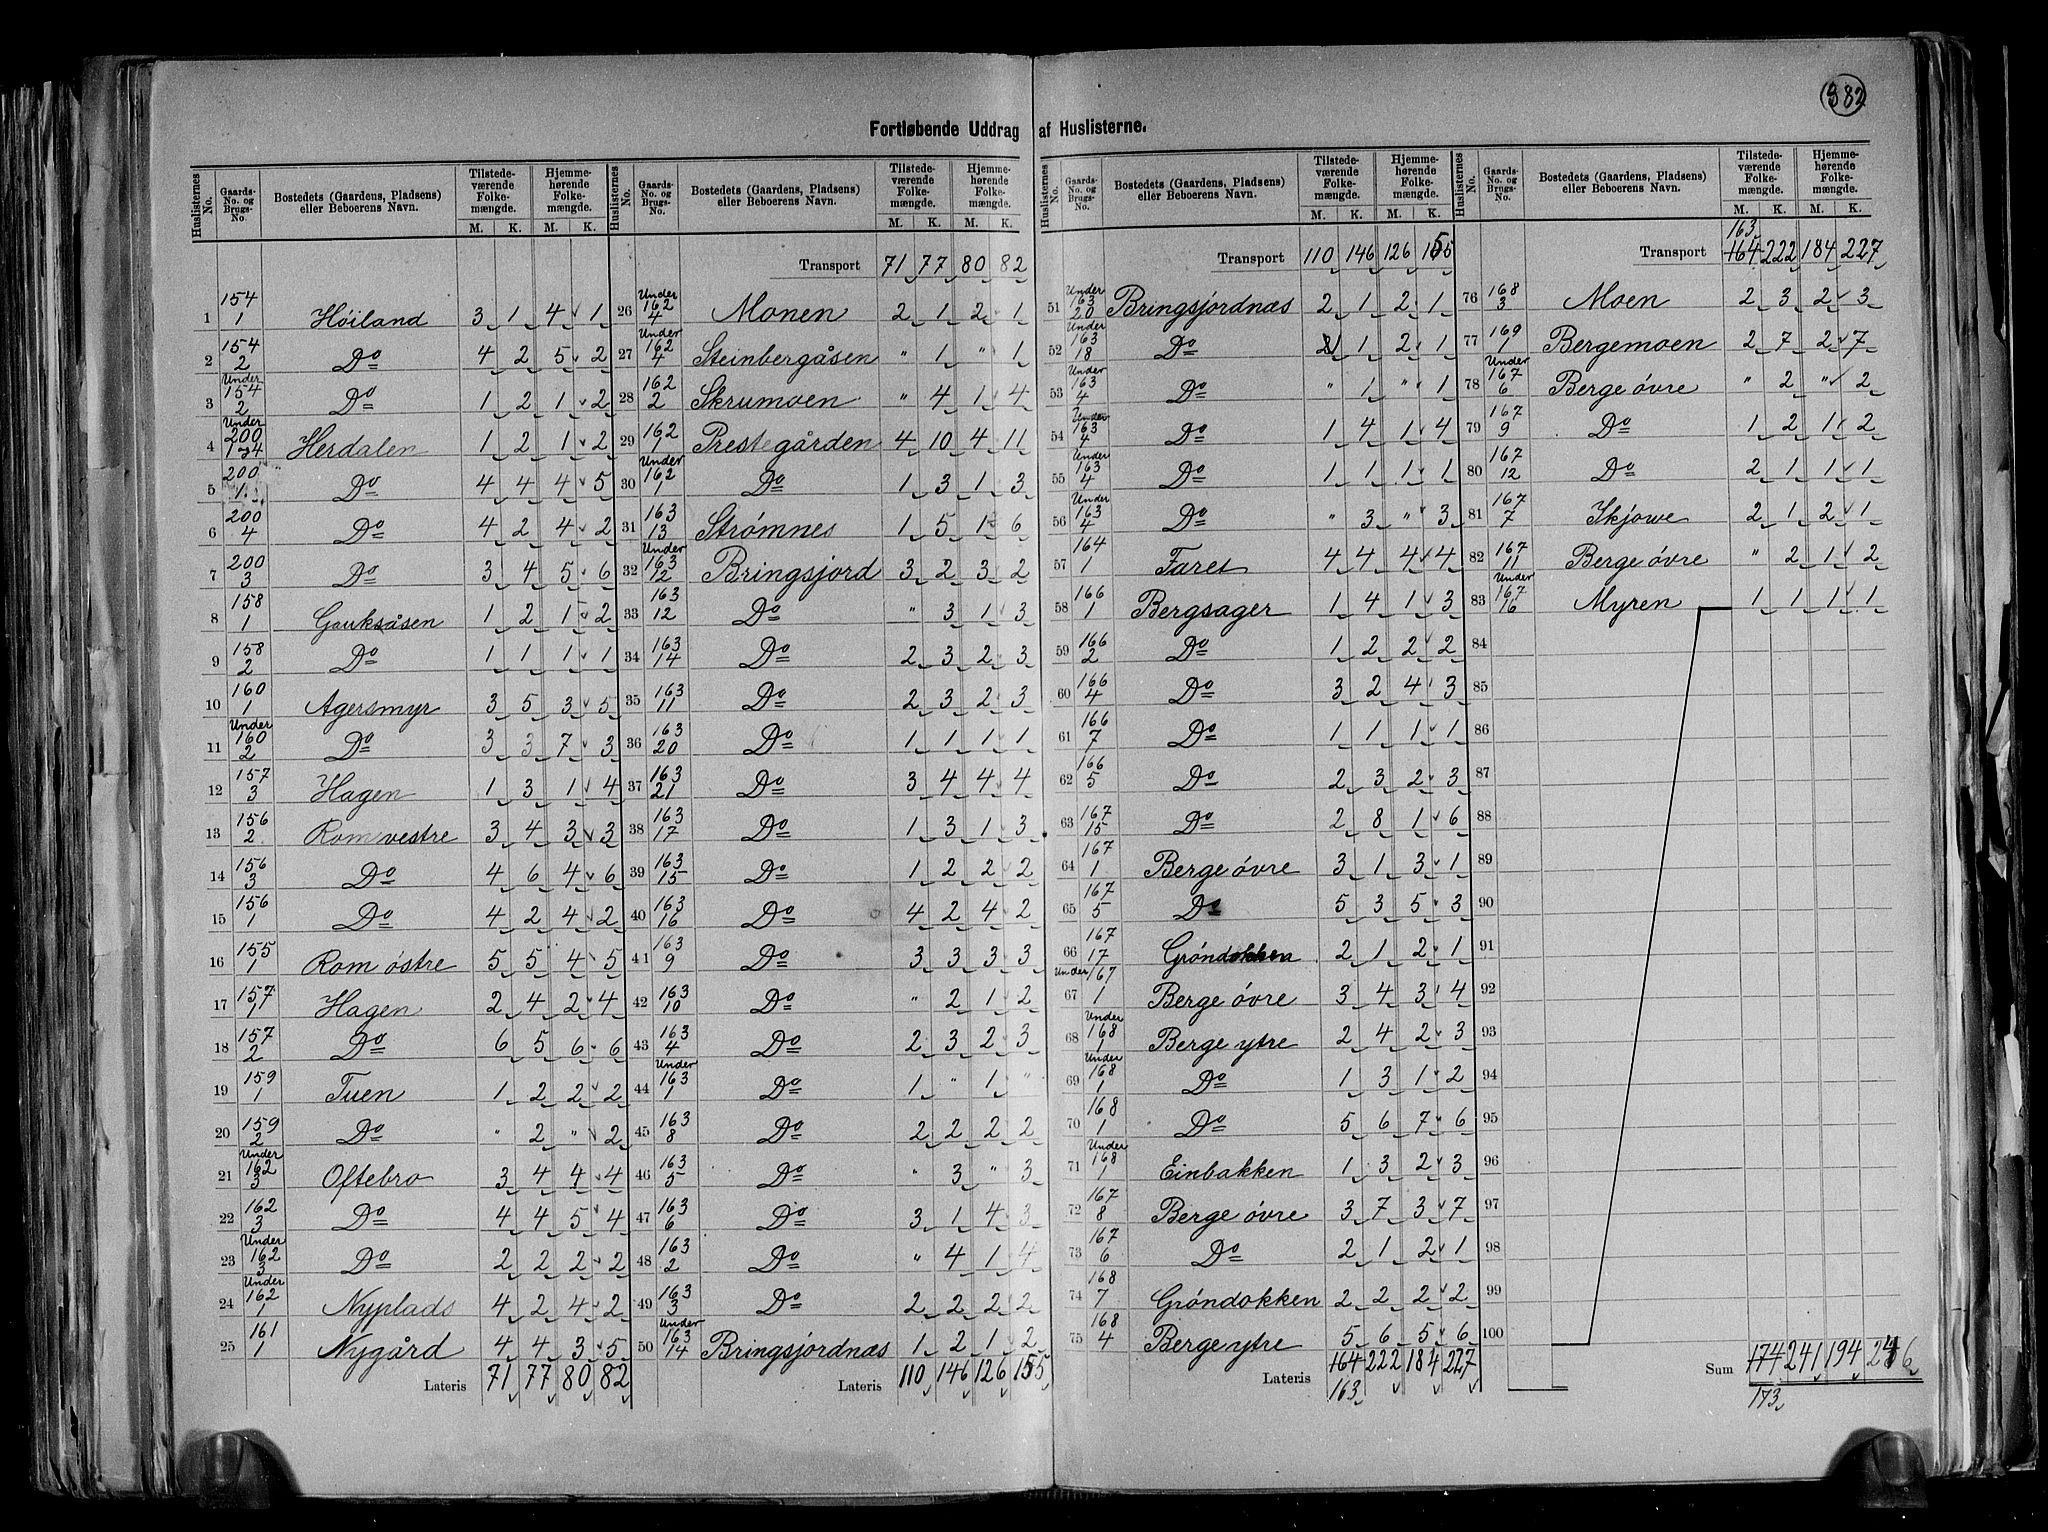 382
Fortløbende Uddrag af Huslisterne.
Huslisternes No. | Gaards-No. og Brugs-No. | Bostedets (Gaardens, Pladsens) eller Beboerens Navn. | Tilstedeværende Folkemængde. M. K. | Hjemmehørende Folkemængde. M. K.
1 154/1 Höiland 3 1 4 1
2 154/2 Do 4 2 5 2
3 Under 154/2 Do 1 2 1 2
4 Under 200/1-4 Herdalen 1 2 1 2
5 200/1 Do 4 4 4 5
6 200/4 Do 4 2 4 2
7 200/3 Do 3 4 5 6
8 158/1 Gauksåsen 1 2 1 2
9 158/2 Do 1 1 1 1
10 160/1 Agersmyr 3 5 3 5
11 Under 160/2 Do 3 3 7 3
12 157/3 Hagen 1 3 1 4
13 156/2 Rom vestre 3 4 3 3
14 156/3 Do 4 6 4 6
15 156/1 Do 4 2 4 2
16 155/1 Rom östre 5 5 4 5
17 157/1 Hagen 2 4 2 4
18 157/2 Do 6 5 6 6
19 159/1 Tuen 1 2 2 2
20 159/2 Do " 2 " 2
21 Under 162/3 Oftebro 3 4 4 4
22 162/3 Do 4 4 5 4
23 Under 162/3 Do 2 2 2 2
24 Under 162/1 Nyplads 4 2 4 2
25 161/1 Nygård 4 4 3 5
Lateris 71 77 80 82
Huslisternes No. | Gaards-No. og Brugs-No. | Bostedets (Gaardens, Pladsens) eller Beboerens Navn. | Tilstedeværende Folkemængde. M. K. | Hjemmehørende Folkemængde. M. K.
Transport 71 77 80 82
26 Under 162/4 Monen 2 1 2 1
27 Under 162/4 Steinbergåsen " 1 " 1
28 162/2 Skrumoen " 4 1 4
29 162/1 Prestegården 4 10 4 11
30 Under 162/1 Do 1 3 1 3
31 163/13 Strømnes 1 5 1 6
32 Under 163/12 Bringsjord 3 2 3 2
33 163/12 Do " 3 1 3
34 163/14 Do 2 3 2 3
35 163/11 Do 2 3 2 3
36 163/20 Do 1 1 1 1
37 163/21 Do 3 4 4 4
38 163/17 Do 1 3 1 3
39 163/15 Do 1 2 2 2
40 163/16 Do 4 2 4 2
41 163/9 Do 3 3 3 3
42 163/10 Do " 2 1 2
43 163/4 Do 2 3 2 3
44 Under 163/1 Do 1 " 1 "
45 163/8 Do 2 2 2 2
46 163/5 Do " 3 " 3
47 163/6 Do 3 1 4 3
48 163/2 Do " 4 1 4
49 163/3 Do 2 2 2 2
50 Under 163/14 Bringsjordnæs 1 2 1 2
Lateris 110 146 126 155
Huslisternes No. | Gaards-No. og Brugs-No. | Bostedets (Gaardens, Pladsens) eller Beboerens Navn. | Tilstedeværende Folkemængde. M. K. | Hjemmehørende Folkemængde. M. K.
Transport 110 146 126 155
51 Under 163/20 Bringsjordnæs 2 1 2 1
52 Under 163/18 Do 1 1 2 1
53 Under 163/4 Do " 1 " 1
54 Under 163/4 Do 1 4 1 4
55 Under 163/4 Do 1 1 1 1
56 Under 163/4 Do " 3 " 3
57 164/1 Faret 4 4 4 4
58 166/1 Bergsager 1 4 1 3
59 166/2 Do 1 2 2 2
60 166/4 Do 3 2 4 3
61 166/7 Do 1 1 1 1
62 166/5 Do 2 3 2 3
63 167/15 Do 2 8 1 6
64 167/1 Berge övre 3 1 3 1
65 167/5 Do 5 3 5 3
66 167/17 Gröndokken 2 1 2 1
67 Under 167/1 Berge övre 3 4 3 4
68 Under 168/1 Berge ytre 2 4 2 3
69 Under 168/1 Do 1 3 1 2
70 168/1 Do 5 6 7 6
71 Under 168/1 Einbakken 1 3 2 3
72 167/8 Berge övre 3 7 3 7
73 167/6 Do 2 1 2 1
74 168/7 Gröndokken 2 2 2 2
75 168/4 Berge ytre 5 6 5 6
Lateris 164 222 184 227
163
Huslisternes No. | Gaards-No. og Brugs-No. | Bostedets (Gaardens, Pladsens) eller Beboerens Navn. | Tilstedeværende Folkemængde. M. K. | Hjemmehørende Folkemængde. M. K.
163
Transport 164 222 184 227
76 168/3 Moen 2 3 2 3
77 169/1 Bergemoen 2 7 2 7
78 Under 167/6 Berge övre " 2 " 2
79 167/9 Do 1 2 1 2
80 167/12 Do 2 1 1 1
81 167/7 Skjowe 2 1 2 1
82 167/11 Berge övre " 2 1 2
83 Under 167/16 Myren 1 1 1 1
84
85
86
87
88
89
90
91
92
93
94
95
96
97
98
99
100
Sum 174 241 194 246
173